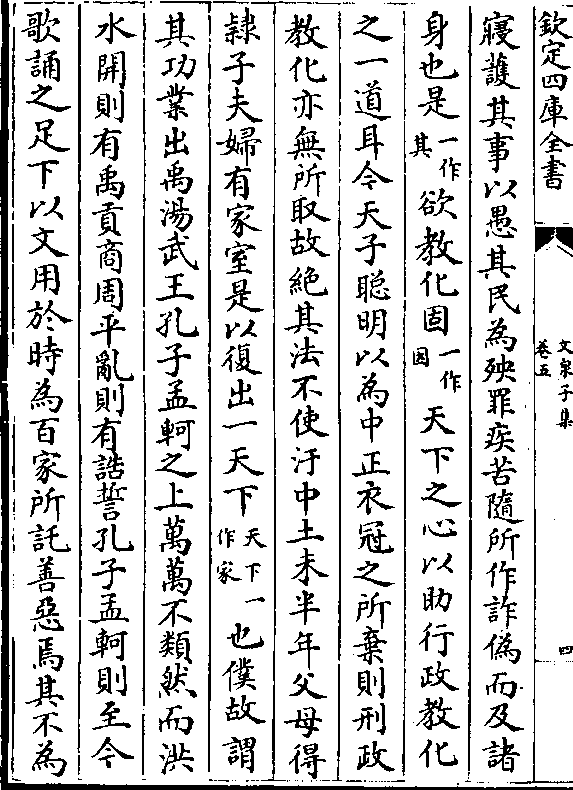 欽定四庫全書
文泉子集
卷五
四
寢護其事以愚其民為殃罪疾苦隨所作詐偽而及諸
身也是一作其欲教化固一作因天下之心以助行政教化
之一道耳今天子聰明以為中正衣冠之所棄則刑政
教化亦無所取故絶其法不使汙中土未半年父母得
隷子夫婦有家室是以復出一天下天下一作家也僕故謂
其功業出禹湯武王孔子孟軻之上萬萬不類然而洪
水開則有禹貢商周平亂則有誥誓孔子孟軻則至今
歌誦之足下以文用於時為百家所託善惡焉其不為